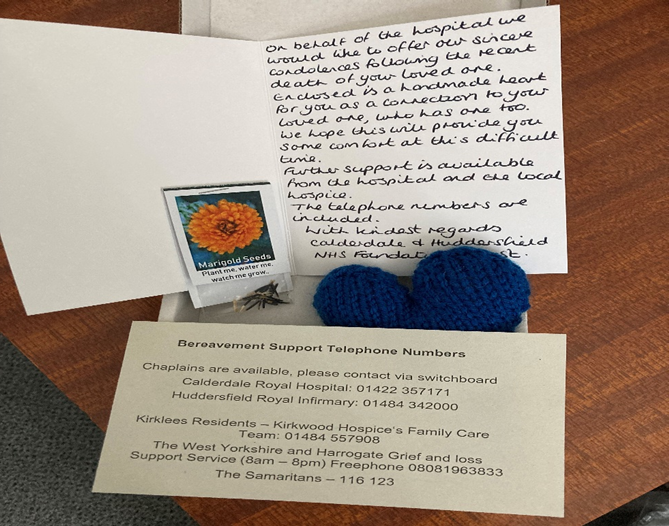 On behalf of the hospital we
would like to offer our sincere
condolences following the recent
death of your loved one.
Enclosed is a handmade heart
for you as a connection to your
loved one, who has one too.
We hope this will provide you
some comfort at this difficult
time.
Further support is available
from the hospital and the local
hospice.
The telephone numbers are
included.
With kindest regards
Calderdale & Huddersfield
NHS
Marigold Seeds
Plant me, water me,
watch me grow..
Bereavement Support Telephone Numbers
Chaplains are available, please contact via switchboard
Calderdale Royal Hospital: 01422 357171
Huddersfield Royal Infirmary: 01484 342000
Kirklees Residents – Kirkwood Hospice's Family Care
Team: 01484 557908
The West Yorkshire and Harrogate Grief and loss
Support Service (8am – 8pm) Freephone 08081963833
The Samaritans – 116 123